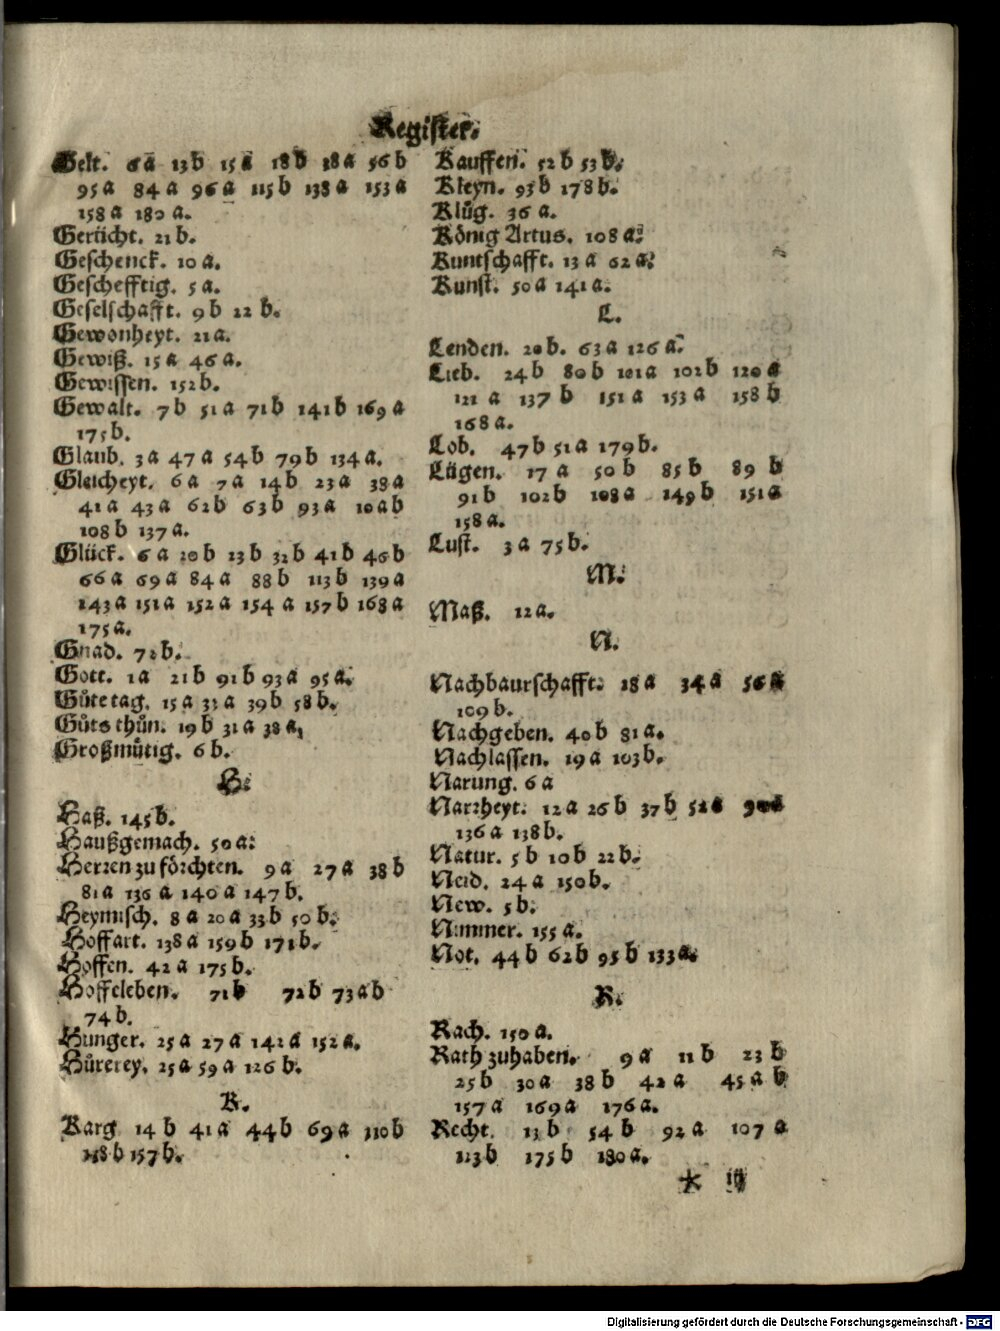 Register.
Gelt. 6a 13b 15a 18b 38a 56b
95a 84a 96a 115b 138a 153a
158a 180a.
Gerücht. 21b.
Geschenck. 10a.
Geschefftig. 5a.
Geselschafft. 9b 22b.
Gewonheyt. 21a.
Gewiß. 15a 46a.
Gewissen. 152b.
Gewalt. 7b 51a 71b 141b 169a
175b.
Glaub. 3a 47a 54b 79b 134a.
Gleicheyt. 6a 7a 14b 23a 38a
41a 43a 62b 63b 93a 10ab
108b 137a.
Glück. 6a 20b 23b 32b 41b 46b
66a 69a 84a 88b 113b 139a
143a 151a 152a 154a 157b 168a
175a.
Gnad. 72b.
Gott. 1a 21b 91b 93a 95a.
Gůte tag. 15a 32a 39b 58b.
Gůts thůn. 19b 31a 38a,
Großmůtig. 6b.
H.
Haß. 145b.
Haußgemach. 50a.
Herren zu förchten. 9a 27a 38b
81a 136a 140a 147b.
Heymisch. 8a 20a 33b 50b.
Hoffart. 138a 159b 171b.
Hoffen. 42a 175b.
Hoffeleben. 71b 72b 73ab
74b.
Hunger. 25a 27a 142a 152a.
Hůrerey. 25a 59a 126b.
K.
Karg 14b 41a 44b 69a 110b
118b 157b.
Kauffen. 52b 53b.
Kleyn. 93b 178b.
Klůg. 36a.
König Artus. 108a.
Kuntschafft. 13a 62a.
Kunst. 50a 141a.
L.
Lenden. 20b. 63a 126a.
Lieb. 24b 80b 101a 102b 120a
121a 137b 151a 153a 158b
168a.
Lob. 47b 51a 179b.
Lügen. 17a 50b 85b 89b
91b 102b 108a 149b 151a
158a.
Lust. 3a 75b.
M.
Maß. 12a.
N.
Nachbaurschafft. 18a 34a 56a
109b.
Nachgeben. 40b 81a.
Nachlassen. 19a 103b.
Narung. 6a
Narrheyt. 12a 26b 37b 52a
136a 138b.
Natur. 5b 10b 22b.
Neid. 24a 150b.
New. 5b.
Nimmer. 155a.
Not. 44b 62b 95b 133a.
R.
Rach. 150a.
Rath zuhaben. 9a 11b 23b
25b 30a 38b 42a 45ab
157a 169a 176a.
Recht. 13b 54b 92a 107a
123b 175b 180a.
* iij
Digitalisierung gefördert durch die Deutsche Forschungsgemeinschaft - DFG